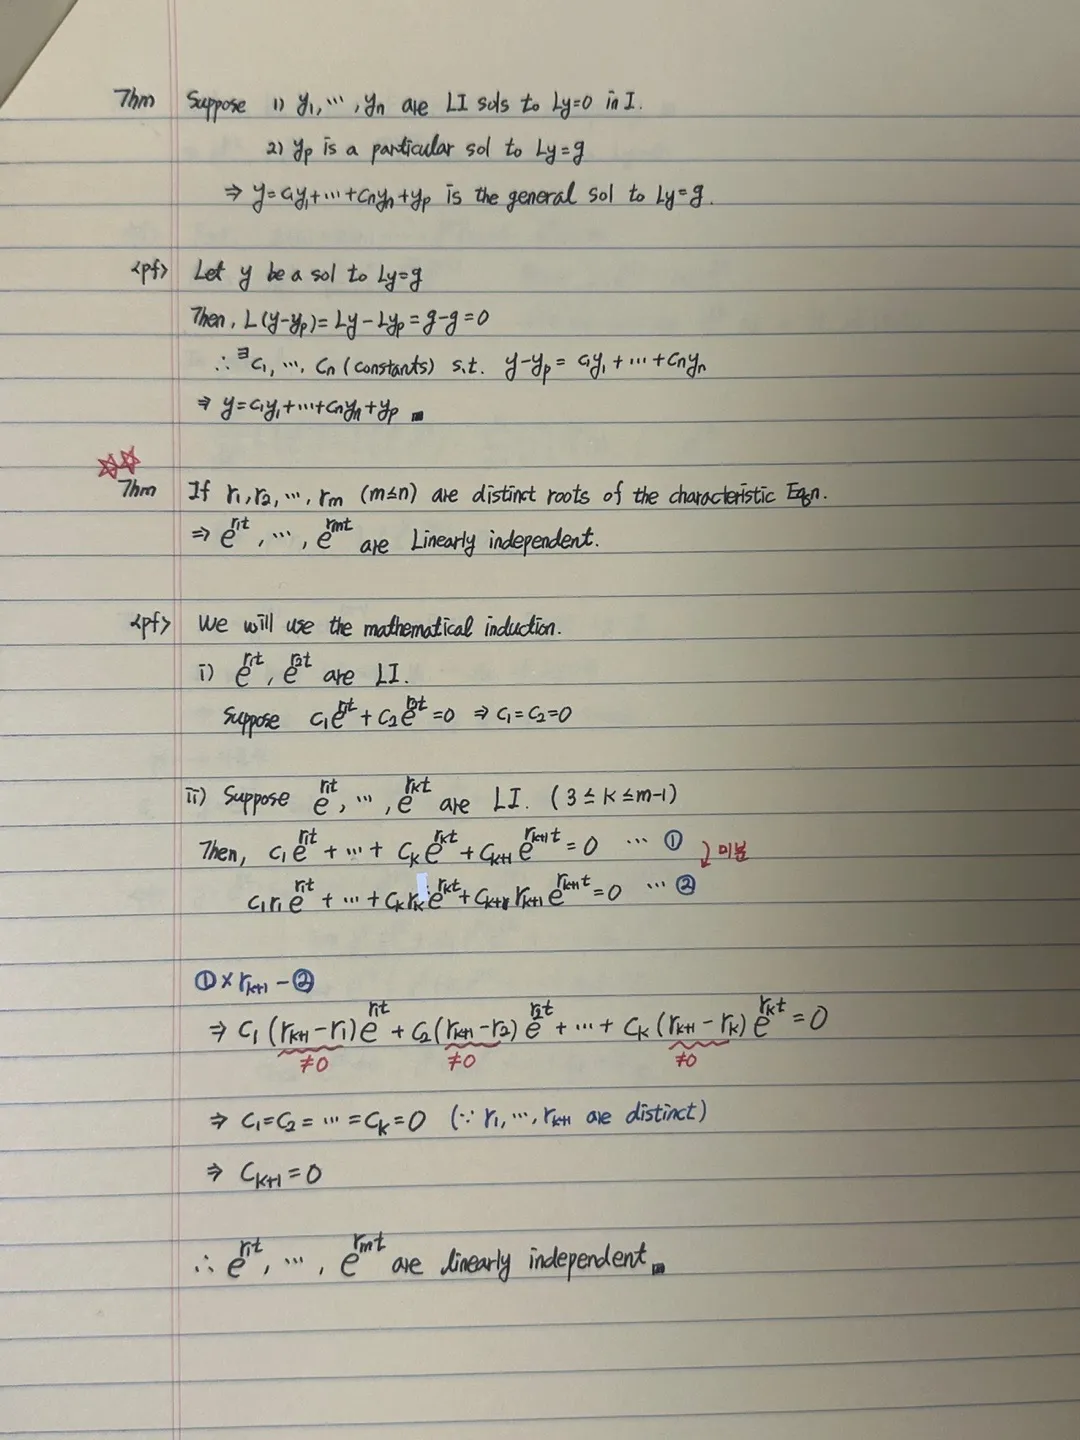 Thm Suppose 1) y₁, ⋯, yₙ are LI sols to Ly=0 in I.
2) yₚ is a particular sol to Ly=g
⇒ y=c₁y₁+⋯+cₙyₙ+yₚ is the general sol to Ly=g.
<pf> Let y be a sol to Ly=g
Then, L(y-yₚ)= Ly-Lyₚ=g-g=0
∴ ∃c₁, ⋯, cₙ (constants) s.t. y-yₚ = c₁y₁+⋯+cₙyₙ
⇒ y=c₁y₁+⋯+cₙyₙ+yₚ ■
☆☆
Thm If r₁, r₂, ⋯, rₘ (m≤n) are distinct roots of the characteristic Eqn.
⇒ e^{r₁t}, ⋯, e^{rₘt} are Linearly independent.
<pf> We will use the mathematical induction.
i) e^{r₁t}, e^{r₂t} are LI.
Suppose c₁e^{r₁t}+c₂e^{r₂t}=0 ⇒ c₁=c₂=0
ii) Suppose e^{r₁t}, ⋯, e^{rₖt} are LI. (3≤k≤m-1)
Then, c₁e^{r₁t}+⋯+cₖe^{rₖt}+cₖ₊₁e^{rₖ₊₁t}=0 ⋯ ① 미분
c₁r₁e^{r₁t}+⋯+cₖrₖe^{rₖt}+cₖ₊₁rₖ₊₁e^{rₖ₊₁t}=0 ⋯ ②
①×rₖ₊₁-②
⇒ c₁(rₖ₊₁-r₁)e^{r₁t}+c₂(rₖ₊₁-r₂)e^{r₂t}+⋯+cₖ(rₖ₊₁-rₖ)e^{rₖt}=0
≠0 ≠0 ≠0
⇒ c₁=c₂=⋯=cₖ=0 (∵ r₁, ⋯, rₖ₊₁ are distinct)
⇒ cₖ₊₁=0
∴ e^{r₁t}, ⋯, e^{rₘt} are linearly independent ■